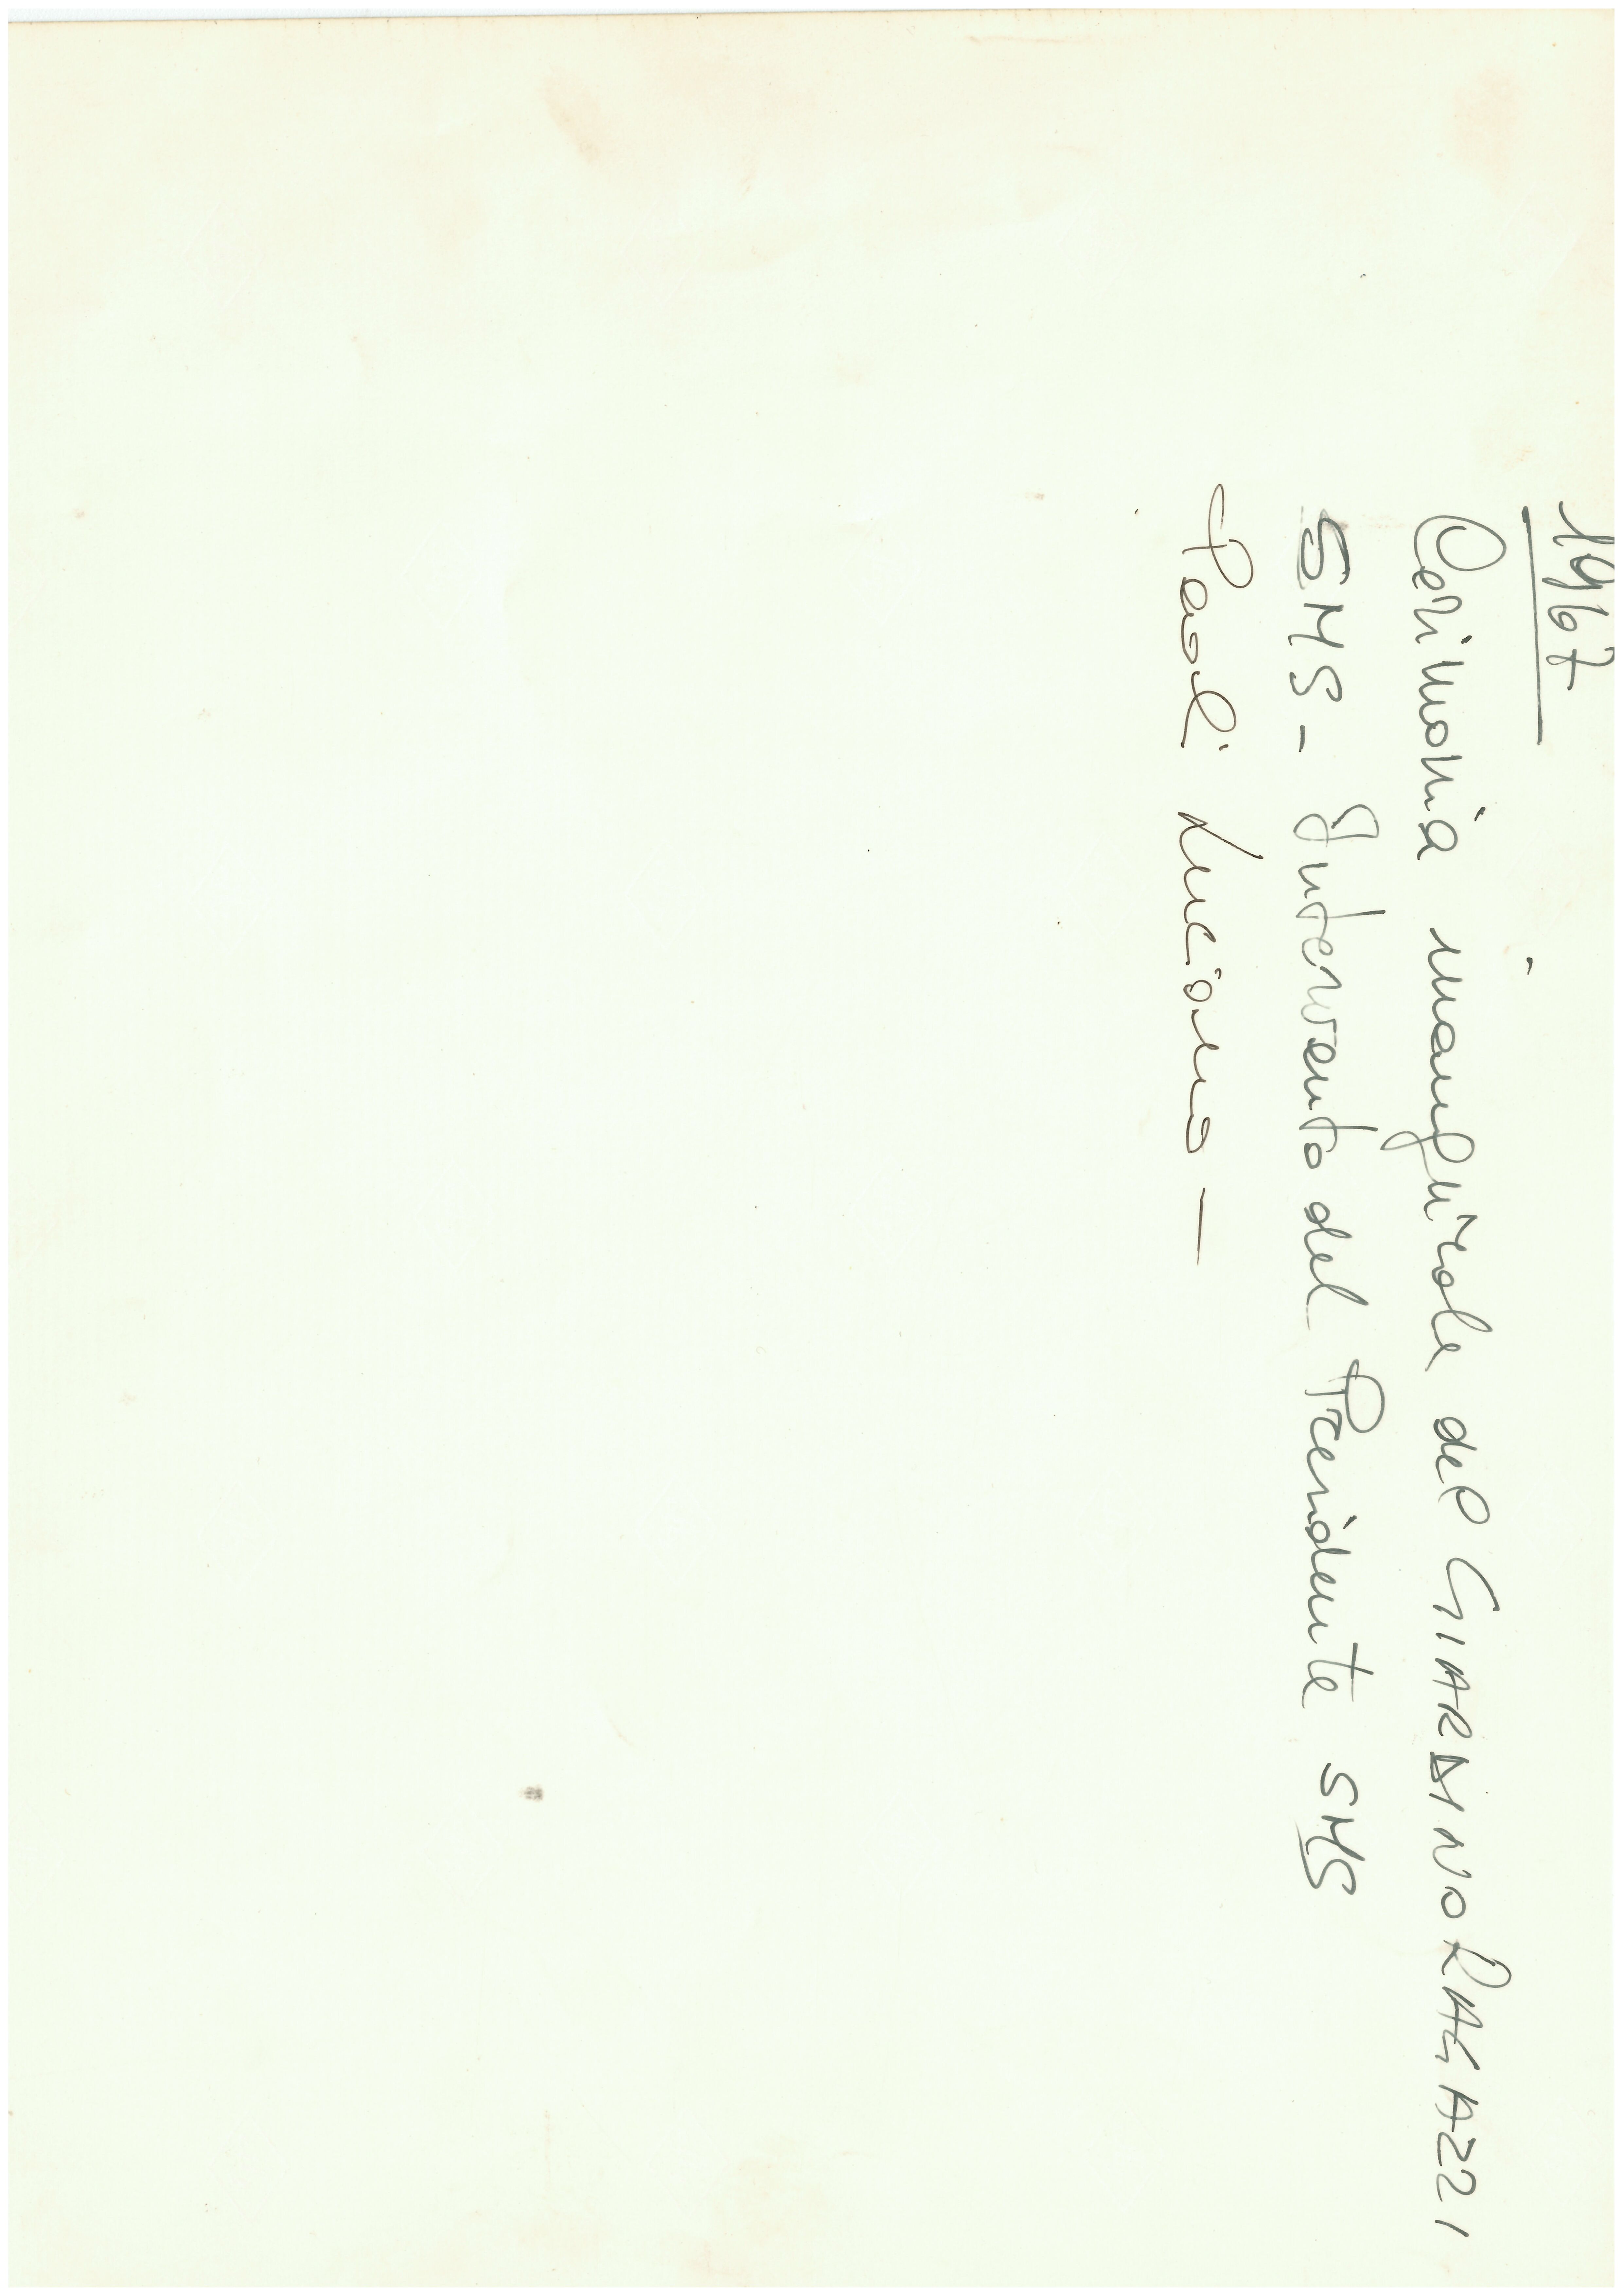 1967
Cerimonia inaugurale del GIARDINO RAGAZZI
SMS - Intervento del Presidente SMS
Paoli Luciano -